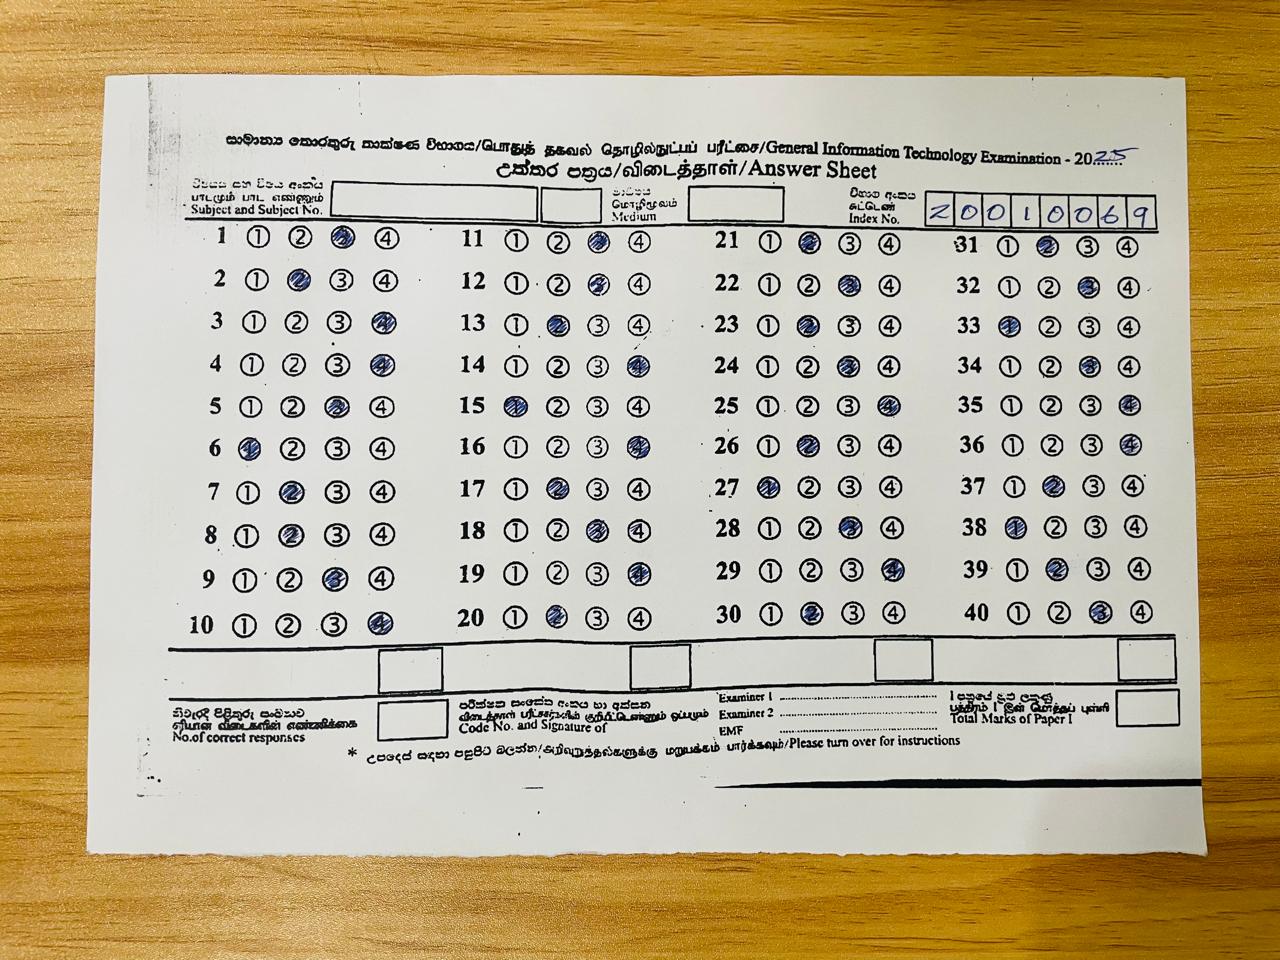 සාමාන්‍ය තොරතුරු තාක්ෂණ විභාගය/பொதுத் தகவல் தொழில்நுட்பப் பரீட்சை/General Information Technology Examination - 2025
උත්තර පත්‍රය/விடைத்தாள்/Answer Sheet
විෂයය සහ විෂය අංකය
பாடமும் பாட எண்ணும்
Subject and Subject No.
මාධ්‍යය
மொழிமூலம்
Medium
විභාග අංකය
சுட்டெண்
Index No. 20010069
1 ① ② ③ ④ 11 ① ② ③ ④ 21 ① ② ③ ④ 31 ① ② ③ ④
2 ① ② ③ ④ 12 ① ② ③ ④ 22 ① ② ③ ④ 32 ① ② ③ ④
3 ① ② ③ ④ 13 ① ② ③ ④ 23 ① ② ③ ④ 33 ① ② ③ ④
4 ① ② ③ ④ 14 ① ② ③ ④ 24 ① ② ③ ④ 34 ① ② ③ ④
5 ① ② ③ ④ 15 ① ② ③ ④ 25 ① ② ③ ④ 35 ① ② ③ ④
6 ① ② ③ ④ 16 ① ② ③ ④ 26 ① ② ③ ④ 36 ① ② ③ ④
7 ① ② ③ ④ 17 ① ② ③ ④ 27 ① ② ③ ④ 37 ① ② ③ ④
8 ① ② ③ ④ 18 ① ② ③ ④ 28 ① ② ③ ④ 38 ① ② ③ ④
9 ① ② ③ ④ 19 ① ② ③ ④ 29 ① ② ③ ④ 39 ① ② ③ ④
10 ① ② ③ ④ 20 ① ② ③ ④ 30 ① ② ③ ④ 40 ① ② ③ ④
නිවැරදි පිළිතුරු සංඛ්‍යාව
சரியான விடைகளின் எண்ணிக்கை
No.of correct responses
පරීක්ෂක සංකේත අංකය හා අත්සන
விடைத்தாள் பரீட்சகர்களின் குறியீட்டெண்ணும் ஒப்பமும்
Code No. and Signature of
Examiner 1
Examiner 2
EMF
I පත්‍රයේ මුළු ලකුණු
பத்திரம் I இன் மொத்தப் புள்ளி
Total Marks of Paper I
* උපදෙස් සඳහා පසුපිට බලන්න/அறிவுறுத்தல்களுக்கு மறுபக்கம் பார்க்கவும்/Please turn over for instructions